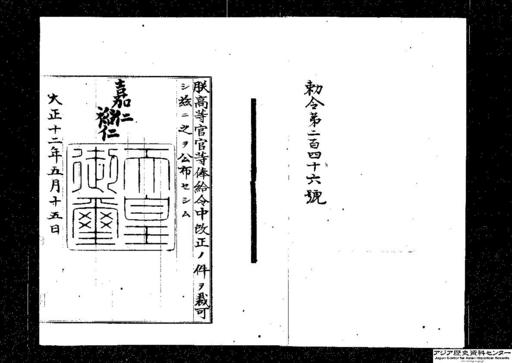 勅令第二百四十六號
朕高等官官等俸給令中改正ノ件ヲ裁可
シ茲ニ之ヲ公布セシム
嘉仁
裕仁
天皇
御璽
大正十二年五月十五日
アジア歴史資料センター
Japan Center for Asian Historical Records